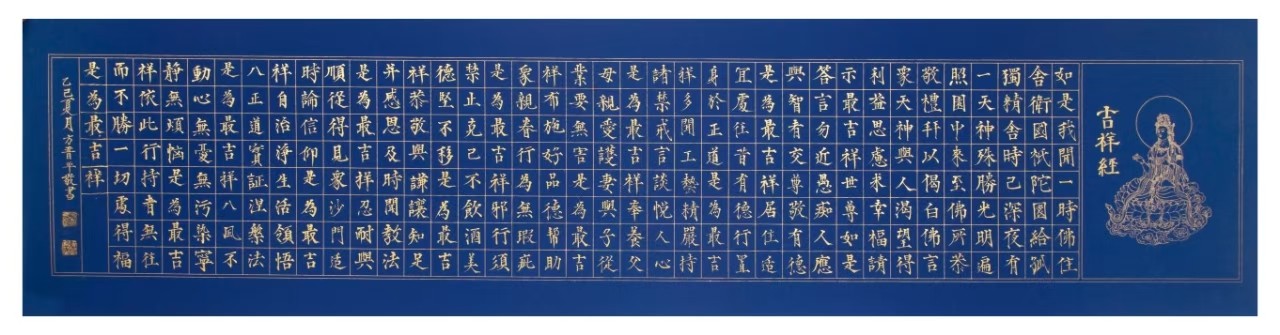 吉祥經
如是我聞一時佛住
舍衛國祇陀園給孤
獨精舍時已深夜有
一天神殊勝光明遍
照園中來至佛所恭
敬禮拜以偈白佛言
眾天神與人渴望得
利益思慮求幸福請
示最吉祥世尊如是
答言勿近愚痴人應
與智者交尊敬有德
是為最吉祥居住適
宜處往昔有德行置
身於正道是為最吉
祥多聞工藝精嚴持
諸禁戒言談悅人心
是為最吉祥奉養父
母親愛護妻與子從
業要無害是為最吉
祥布施好品德幫助
眾親眷行為無瑕疵
是為最吉祥邪行須
禁止克己不飲酒美
德堅不移是為最吉
祥恭敬與謙讓知足
并感恩及時聞教法
是為最吉祥忍耐與
順從得見眾沙門適
時論信仰是為最吉
祥自治淨生活領悟
八正道實証涅槃法
是為最吉祥八風不
動心無憂無污染寧
靜無煩惱是為最吉
祥依此行持者無往
而不勝一切處得福
是為最吉祥
乙巳夏月方青平敬書